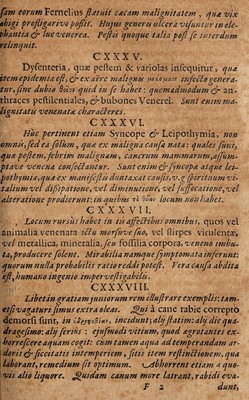 ſam eorum Fernelius ſtatuit cæcam malignitatem, quæ vix
abigi proſtigariva poßit. Hujus generis ulcera viſuntur in ele-
phantia & lue venerea. Peſtis quoque talia poſt ſe interdum
relinquit.
CXXXV.
Dyſenteria, quæ peſtem & variolas inſequitur, quæ
item epidemia eſt, & ex aëre maligno infecto genera-
tur, ſine dubio θεῖον quid in ſe habet: quemadmodum & an-
thraces peſtilentiales, & bubones Venerei. Sunt enim ma-
lignitatis venenatæ characteres.
CXXXVI.
Huc pertinent etiam Syncope & Leipothymia, non
omnis, ſed ea ſolùm, quæ ex maligna cauſa nata: quales ſunt,
quæ peſtem, febrim malignam, cancrum mammarum, aſſum-
ptave venena conſectantur. Sunt enim & ſyncopæ atque lei-
pothymiæ, quæ ex manifeſta ducuntur cauſis, v. g. ſpirituum vi-
talium vel dißipatione, vel diminutione, vel ſuffocatione, vel
alteratione prodierunt: in quibus τὸ θεῖον locum non habet.
CXXXVII.
Locum rurſus habet in iis affectibus omnibus, quos vel
animalia venenata ictu morſuve ſuo, vel ſtirpes virulentæ,
vel metallica, mineralia, ſeu foſſilia corpora, veneno imbu-
ta, producere ſolent. Mirabilia namque ſymptomata inferunt:
quorum nulla probabilis ratio reddi poteſt. Vera cauſa abdita
eſt, humano ingenio impervestigabilis.
CXXXVIII.
Libet in gratiam juniorum rem illustrare exemplis: tam-
etſi vagaturſimus extra oleas. Qui à cane rabie correpto
demorſi ſunt, in incidunt; alij ſtatim: alij die qua-
drageſimo: alij ſeriùs: ejuſmodi vitium, quod agrotantes ex-
horreſcere aquam cogit: cum tamen aqua ad temperandam ar-
doris & ſiccitatis intemperiem, ſitis item reſtinctionem, qua
laborant, remedium ſit optimum. Abhorrent etiam à quo-
vis alio liquore. Quidam canum more latrant, rabidi eva-
F 2 dunt,